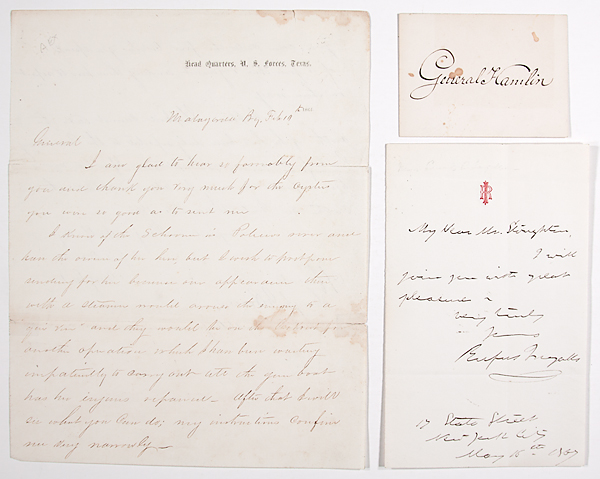 Head Quarters, U. S. Forces, Texas.
Matagorda Bay, Feb 19th
General
I am glad to hear so from you
you and thank you very much for the oysters
you were so good as to send me
I knew of the Schooner in and
has the owner of her here, but I wish to postpone
sending for her because our appearance there
with a steamer would arouse the enemy to a
and they would be on for
another operation which I have been waiting
impatiently to carry out till the gun boat
has her engines repaired – After that I will
see what you can do; my instructions confine
me very narrowly –
General Hamlin
My Dear Mr. Stoughton
I will
join you with great
pleasure –
Very truly
Yours
Rufus Ingalls
17 State Street
New York City
May 18th 1887